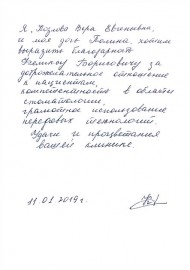 Я, Козлова Вера Евгеньевна,
и моя дочь Полина, хотим
выразить благодарность
Борисовичу за
доброжелательное отношение
к пациентам,
компетентность в области
стоматологии,
грамотное использование
передовых технологий.
Удачи и процветания
вашей клинике.
11.01.2019г.